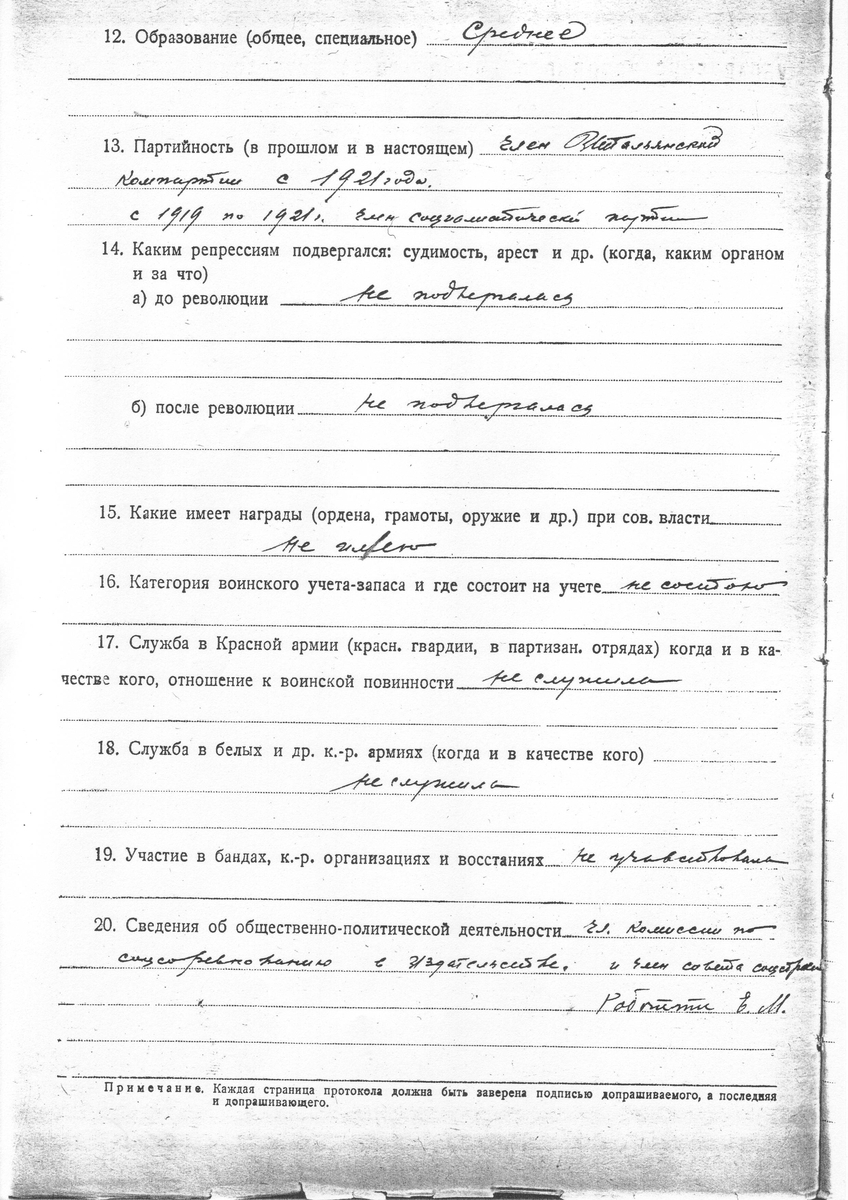 12. Образование (общее, специальное) Среднее
13. Партийность (в прошлом и в настоящем) член Итальянской
Компартии с 1921 года.
с 1919 по 1921 г. член социалистической партии
14. Каким репрессиям подвергался: судимость, арест и др. (когда, каким органом
и за что)
а) до революции не подвергалась
б) после революции не подвергалась
15. Какие имеет награды (ордена, грамоты, оружие и др.) при сов. власти
не имею
16. Категория воинского учета-запаса и где состоит на учете не состою
17. Служба в Красной армии (красн. гвардии, в партизан. отрядах) когда и в ка-
честве кого, отношение к воинской повинности не служила
18. Служба в белых и др. к.-р. армиях (когда и в качестве кого)
не служила
19. Участие в бандах, к.-р. организациях и восстаниях не участвовала
20. Сведения об общественно-политической деятельности чл. Комиссии по
соцсоревнованию в Издательстве. и член совета соцстраха
Роботти Е. М.
Примечание. Каждая страница протокола должна быть заверена подписью допрашиваемого, а последняя
и допрашивающего.